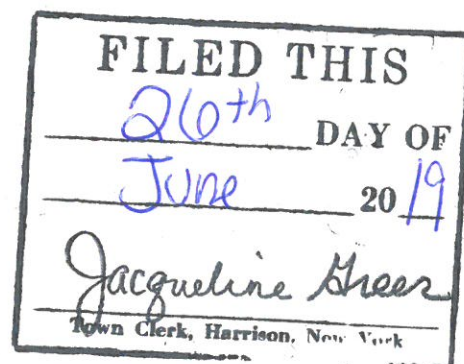 FILED THIS
26th DAY OF
June 20 19
Jacqueline Greer
Town Clerk, Harrison, New York